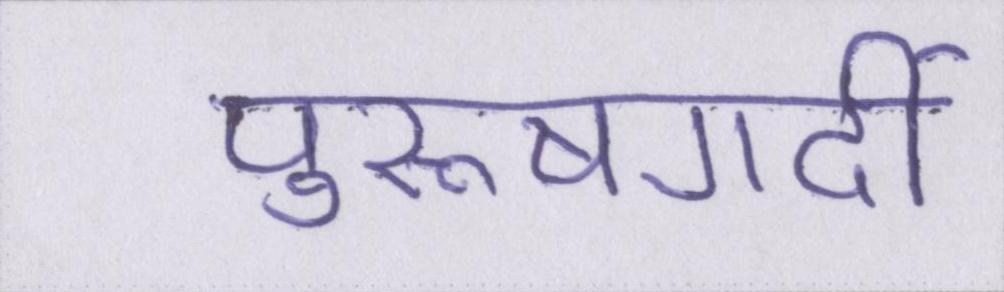 पुरूषगर्दी